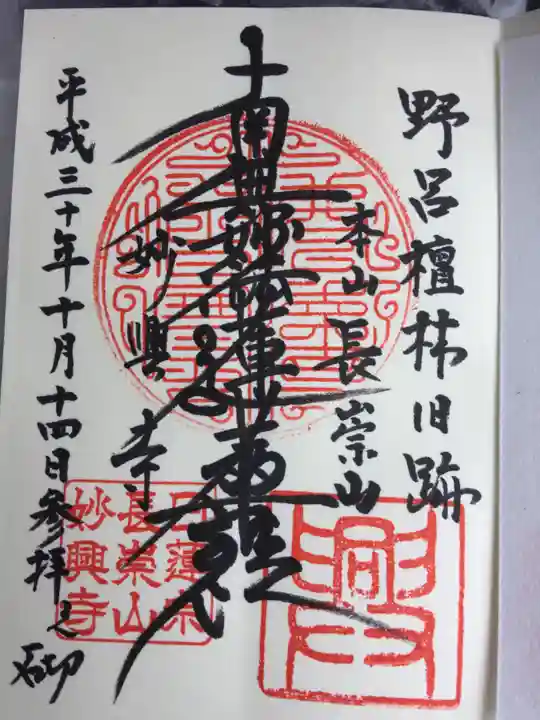 野呂檀林旧跡
本山 長崇山
南無妙法蓮華経
妙興寺
平成三十年十月十四日参拝之
日蓮宗
長崇山
妙興寺